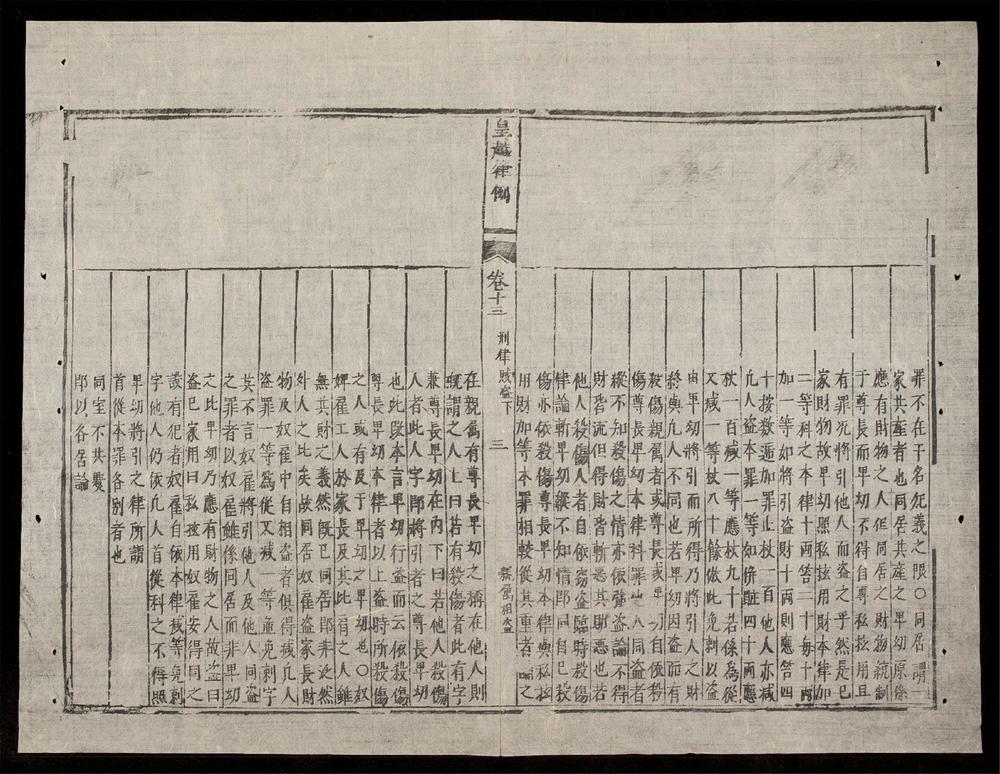 罪不在于名犯義之限○同居謂一
家共產者也同居共產之卑幼原係
應有財物之人但同居之財物統制
于尊長而卑幼不得自專私擅用且
有罪况將引他人而盗之乎然是已
家財物故卑幼照私擅用財本律加
二等科之本律十兩笞二十每十兩
加一等如將引盗財十兩則應笞四
十按數遞加罪止杖一百他人亦减
凡人盗本罪一等如併贓四十兩應
杖一百减一等應杖九十若係為從
又减一等杖八十餘倣此免刺以盗
由卑幼將引而所得乃將引人之財
終與凡人不同也若卑幼因盗而有
殺傷親属者或尊長或卑幼自依殺
傷尊長卑幼本律科罪他人同盗者
縱不知殺傷之情亦依强盗論不得
財皆流但得財皆斬惡其助惡也若
他人殺傷人者自依窃盗臨時殺傷
律論斬卑幼縱不知情即同自己殺
傷亦依殺傷尊長卑幼本律與私擅
用財加等本罪相較從其重者論之
皇越律例
卷十三 刑律賊盗下 三 親属相盗
在親属有尊長卑幼之稱在他人則
槩謂之人上曰若有殺傷者此有字
兼尊長卑幼在内下曰若他人殺傷
人者此人字即將引者之尊長卑幼
也此段本言卑幼行盗而云依殺傷
尊長卑幼本律者以上盗時所殺傷
之人或有及于卑幼也○奴
婢雇工人於家長及其此有之人雖
無其財之義然既已同居即非泛然
外人之比矣故同居奴雇盗家長財
物及奴雇中自相盗者俱得减凡人
盗罪一等為從又减一等並免刺字
其不言奴雇將引他人及他人同盗
之罪者以奴雇雖係同居而非卑幼
之比卑幼乃應有財物之人故盗曰
盗已家用曰私擅用奴雇安得同之
設有犯者奴雇自依本律减等免刺
字他人仍依凡人首從科之不得照
卑幼將引之律所謂
首從本罪各别者也
同室不共爨
即以各居論